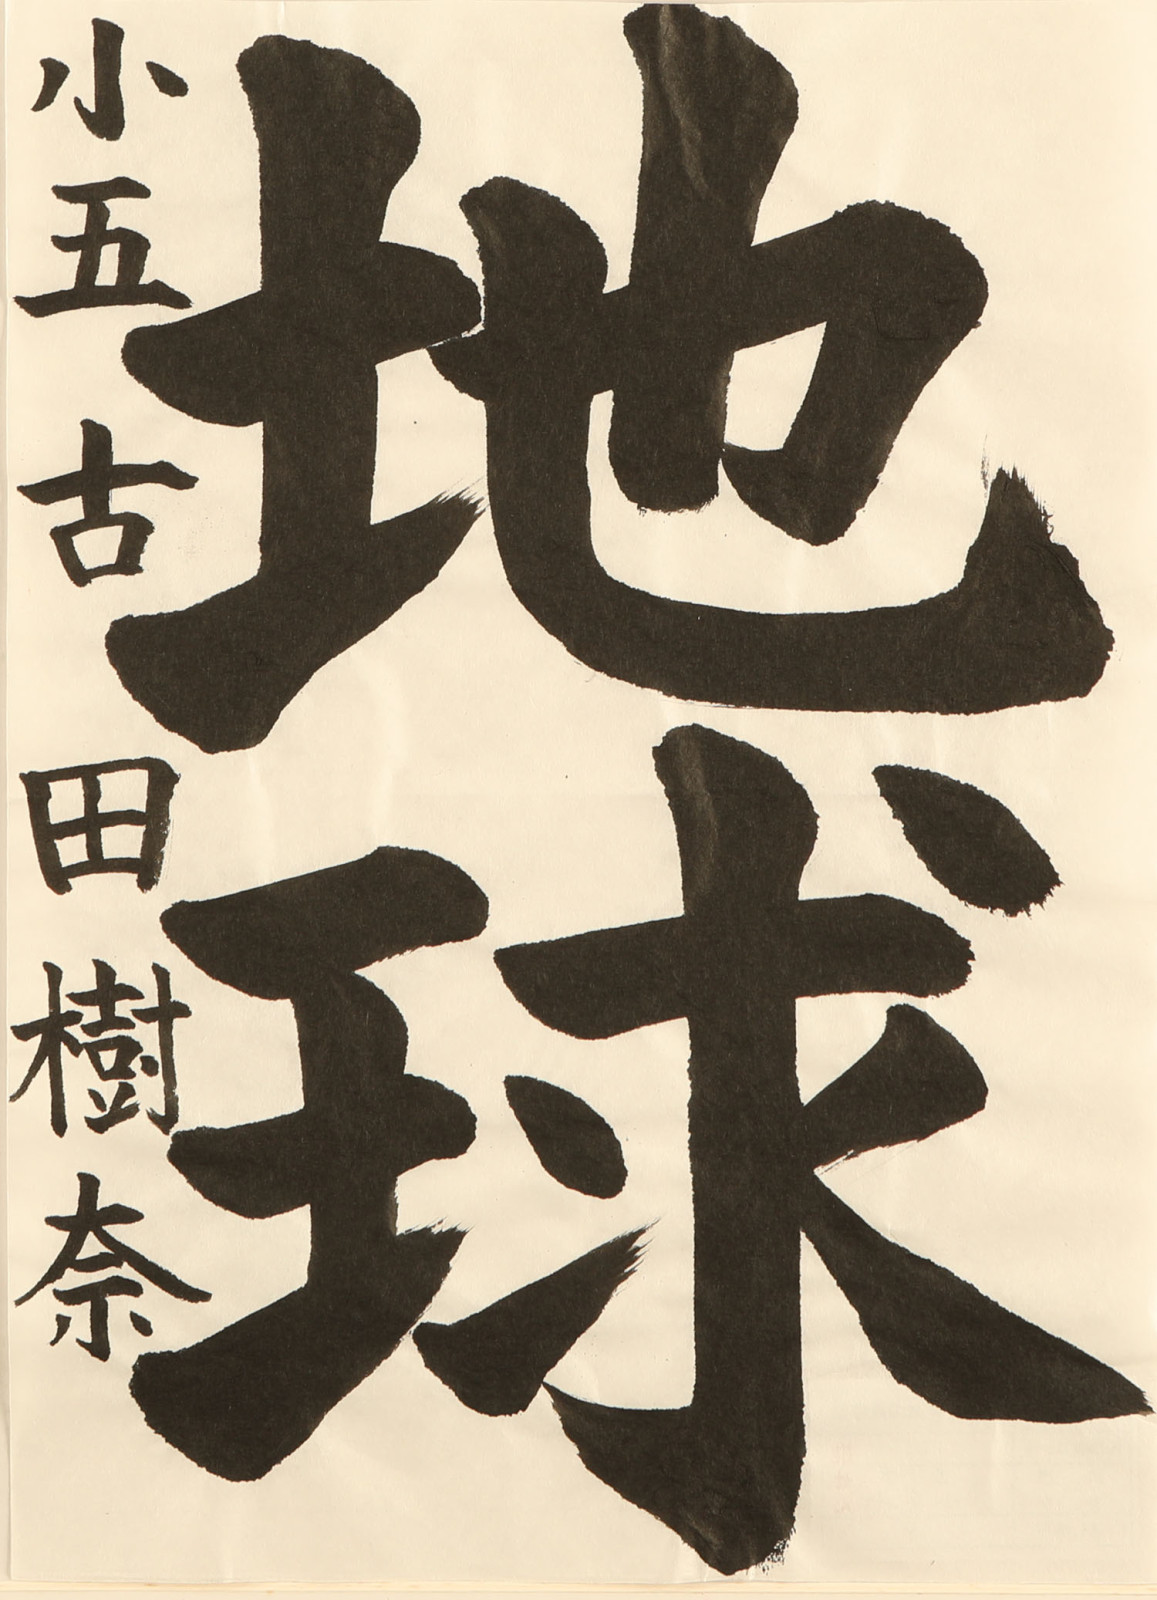 地球
小五 古田樹奈